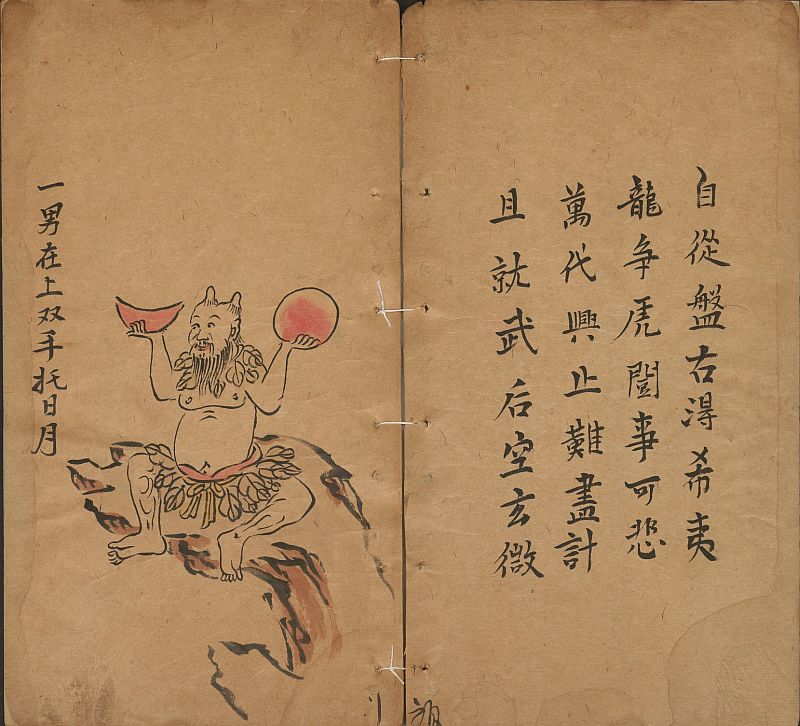 自從盤右淂希夷
龍争虎闘事可悲
萬代興止難盡計
且就武后空玄微
一男在上双手托日月